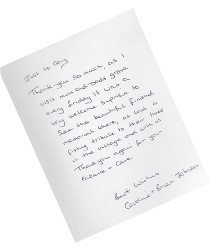 Just to say
Thank you so much, as I
visit mum and dads grave
every friday it was a
very welcome suprise to
see the beautiful finished
memorial stone, at last a
fitting tribute to their lives
in the village and with us
Thank you again for your
patience + care
Best Wishes
+ Brian